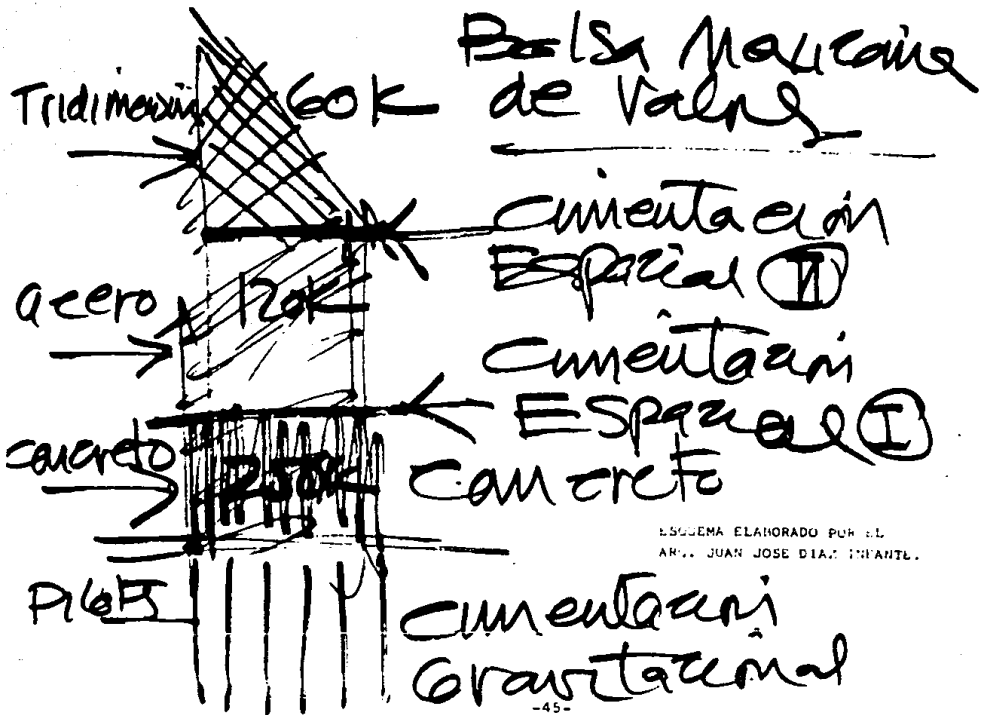 Bolsa Mexicana
de Valores
Tridimensión
60K
Cimentación
Espacial II
acero
120K
Cimentación
Espacial I
concreto
250K
Concreto
ESQUEMA ELABORADO POR EL
ARQ. JUAN JOSE DIAZ INFANTE.
Pilotes
Cimentación
Gravitacional
-45-